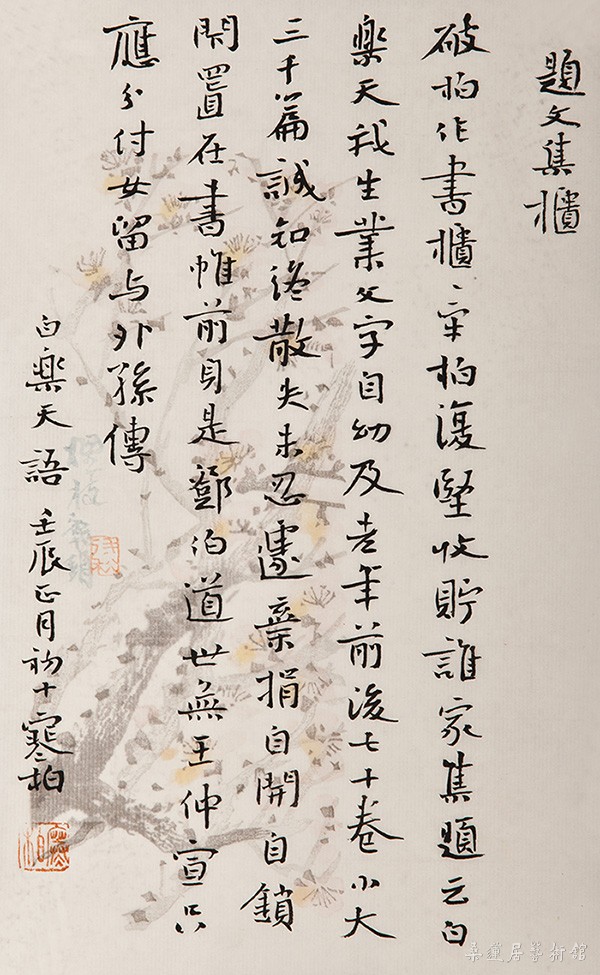 題文集櫃
破柏作書櫃〻牢柏復堅收貯誰家集題云白
樂天我生業文字自幼及老年前後七十卷小大
三千篇誠知終散失未忍遽棄捐自開自鎖
閉置在書帷前身是鄧伯道世無王仲宣只
應分付女留与外孫傳
白樂天語 壬辰正月初十寒柏
寒柏
桑蓮居藝術館